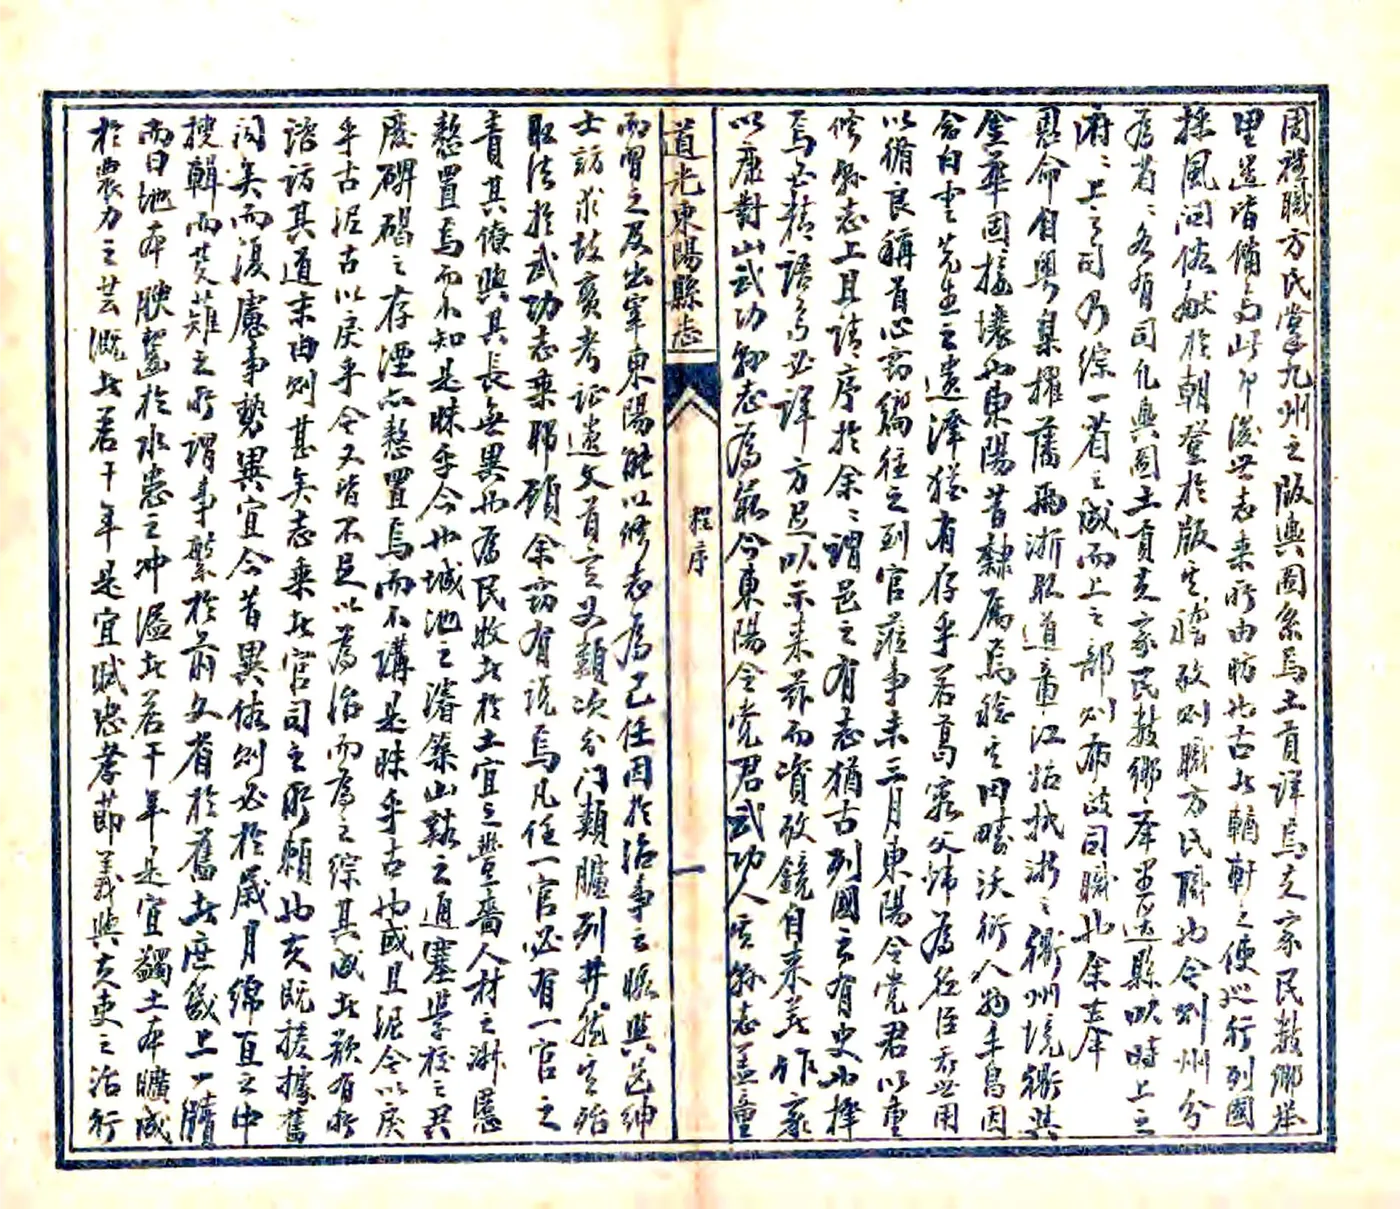 周禮職方氏掌九州之版輿圖系焉土貢譯焉文家民數鄉舉
里選皆備焉此即後世志乘所由昉也古者輶軒之使巡行列國
採風問俗獻於朝登於版其瞻攷則職方氏職也今則州分
為省省各有司凡輿圖土貢文家民數鄉舉里選縣以時上之
府府上之司乃綜一省之成而上之部則布政司職也余奉
恩命自粵臬擢藩兩浙取道章江始抵浙之衢州境衢與
金華固接壤而東陽昔隸屬焉稔其田疇沃衍人物丰昌因
念白雲先生之遺澤猶有存乎若葛寡父婦為名臣系世用
以循良稱首心竊嚮往之到官蒞事未三月東陽令党君以重
修縣志上且請序於余余謂邑之有志猶古列國之有史也擇
焉必精語焉必詳方足以示来茲而資攷鏡自来羑作家
以康對山武功縣志為最今東陽令党君武功人其縣志蓋童
道光東陽縣志
程序
一
而習之及出宰東陽能以修志為己任因於治事之暇與邑紳
士訪求故實考证遺文首言义類次分门類臚列井然其殆
取法於武功志乘耶顧余竊有说焉凡任一官必有一官之
責其僚與其長無異而為民牧者於土宜之豐嗇人材之淋慝
憖置焉而不知是昧乎今也城池之濬築山谿之通塞學校之興
廢碑碣之存湮亦憖置焉而不講是昧乎古也或且泥今以戾
乎古泥古以戾乎今又皆不足以為治而為之綜其成者顏有所
諮訪其道末由則甚矣志乘者官司之所賴也夫既援據舊
闻矣而復慮事勢異宜今昔異俗則必於歲月綿亙之中
搜輯而芟薙之所謂事繁於前文省於舊者庶幾上以牘
而曰地本腴鬯於水患之冲溢者若干年是宜蠲土本曠成
於農力之芸溉者若干年是宜賦忠孝節義與夫吏之治行